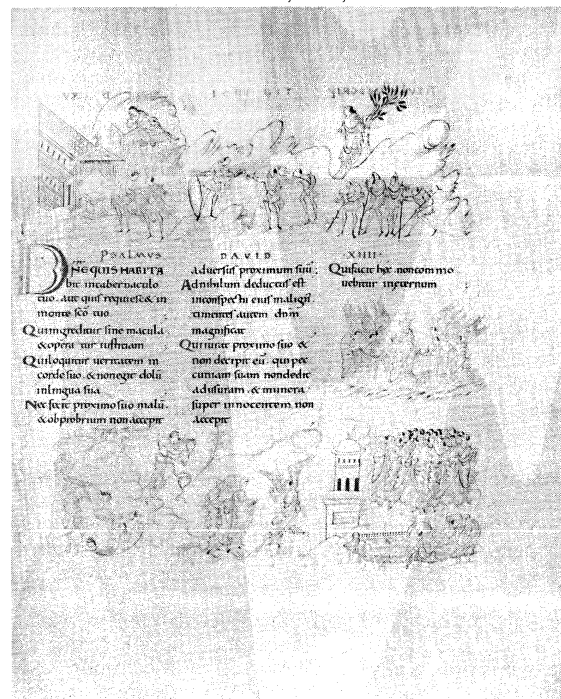 PSALMVS DAVID XIIII·
DNE QUIS HABITA
bit intabernaculo
tuo· aut quis requiesc& in
monte sco tuo
Quiingreditur sine macula·
&opera tur iustitiam
Quiloquitur ueritatem in
corde suo· & nonegit dolū
inlingua sua
Nec fecit proximo suo malū·
& obprobrium non accepit
aduersus proximum suū·
Adnihilum deductus est
inconspectu eius malign'
timentes autem dnm
magnificat
Quiiurat proximo suo &
non decepit eū· qui pec
cuniam suam nondedit
adusuram· & munera
super innocentem non
accepit
Quifacit hec· noncommo
uebitur ineternum